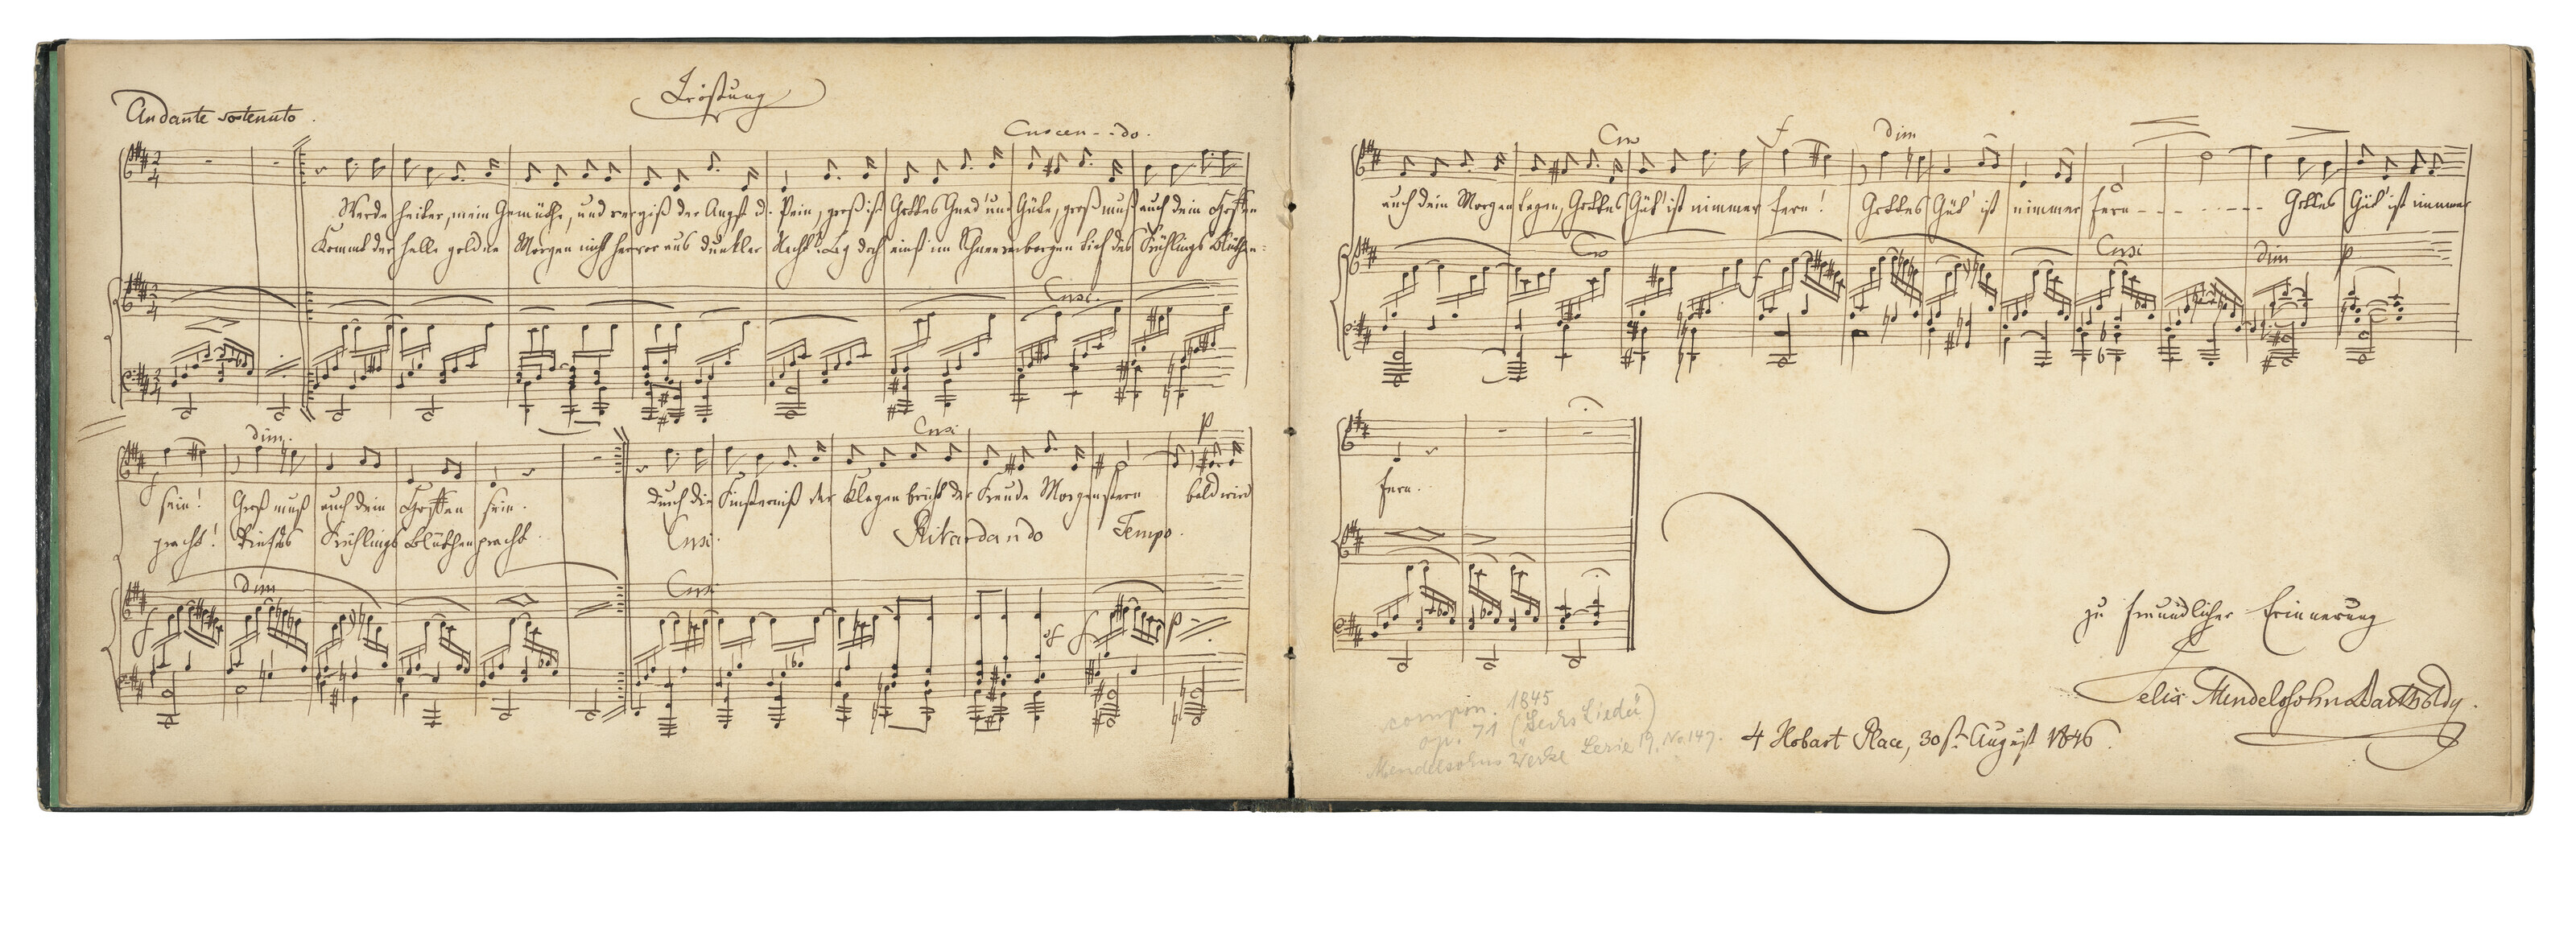 Tröstung
Andante sostenuto.
Crescen - - do.
Werde heiter, mein Gemüthe, und vergiß der Angst u. Pein, groß ist Gottes Gnad' und Güte, groß muß auch dein Hoffen
Kommt der helle goldne Morgen nicht hervor aus dunkler Nacht? Lag doch einst im Schnee verborgen tief des Frühlings Blüthen-
Cresc.
dim.
Cresc.
p
f
sein! Groß muß auch dein Hoffen sein. durch die Finsterniß der Klagen bricht der Freude Morgenstern bald wird
pracht! Tief des Frühlings Blüthenpracht. Cresc. Ritardando Tempo.
dim
Cresc
f
sf f p
Cres f dim
auch dein Morgen tagen, Gottes Güt' ist nimmer fern! Gottes Güt' ist nimmer fern - - - - - - - Gottes Güt' ist nimmer
Cres
Cresc dim p
f
fern.
zu freundlicher Erinnerung
Felix Mendelssohn Bartholdy.
4 Hobart Place, 30st August 1846.
compon. 1845
op. 71 (Sechs Lieder)
Mendelsohns Werke Serie 19, No 147.